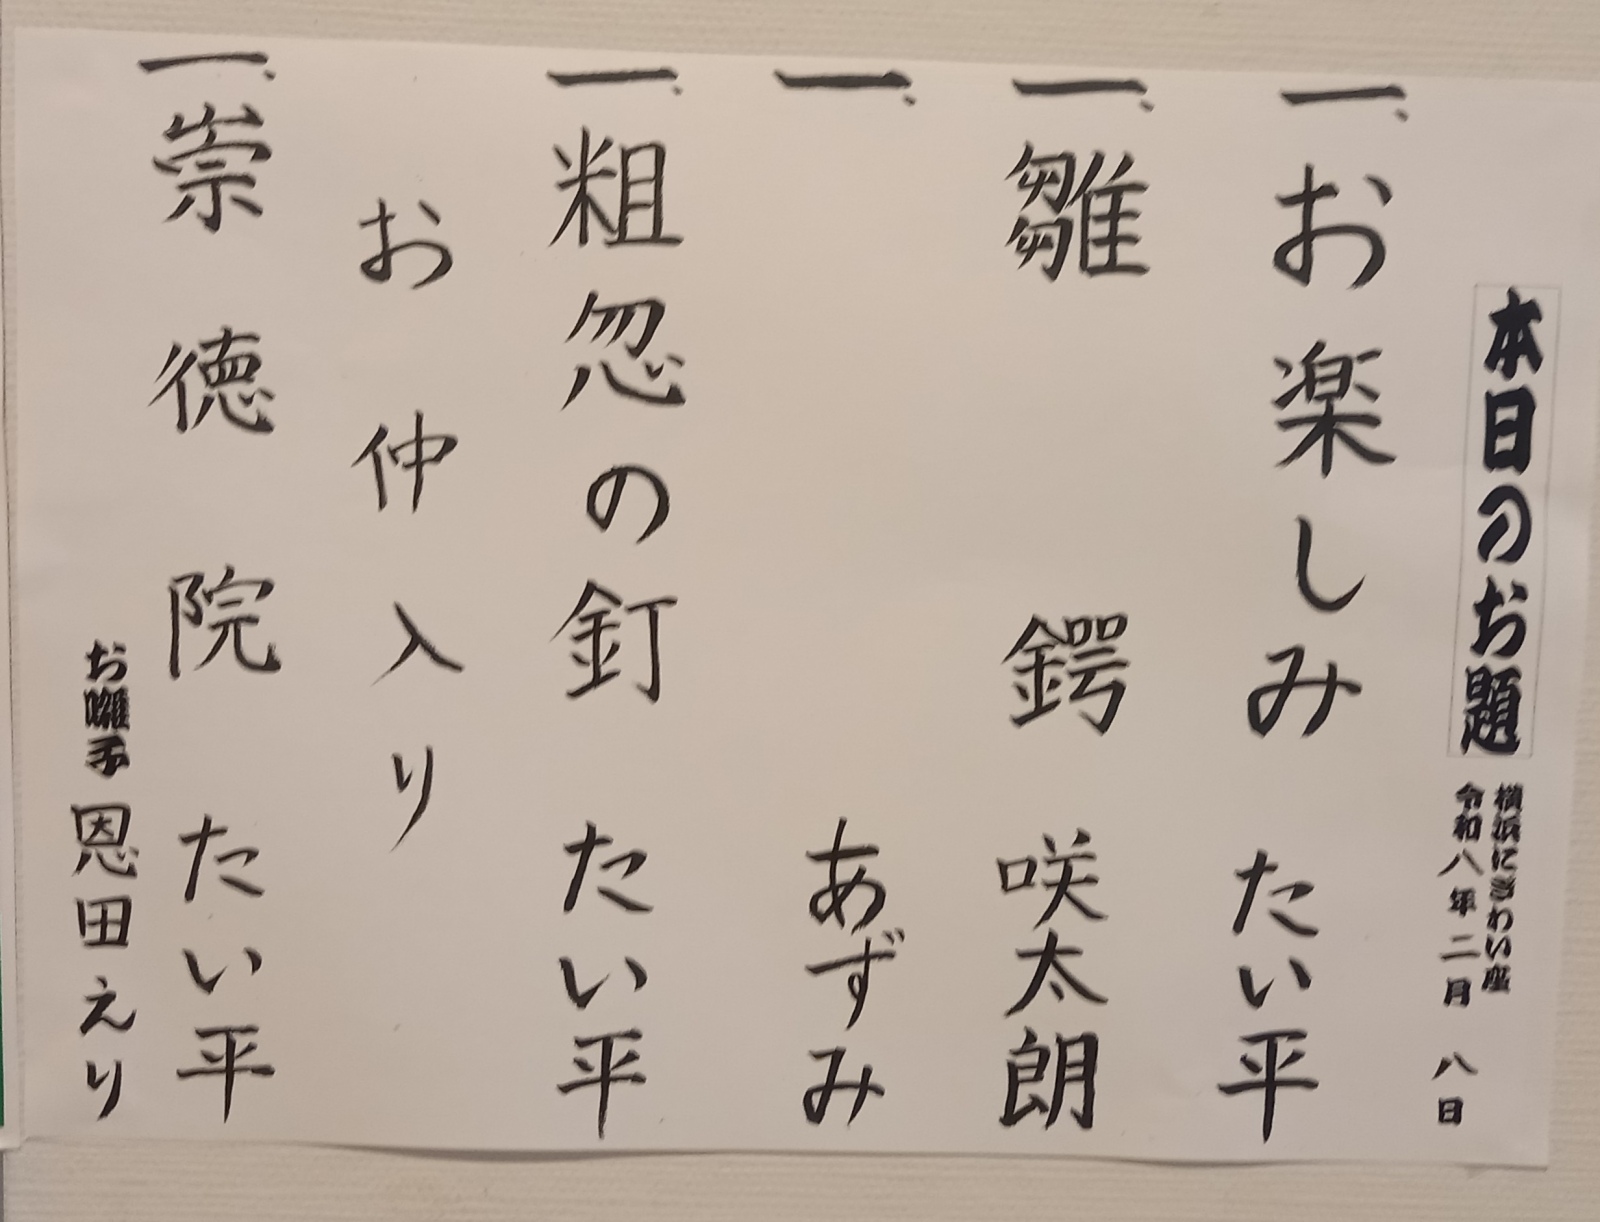 本日のお題
横浜にぎわい座
令和八年二月 八日
一、お楽しみ たい平
一、雛鍔 咲太朗
一、 あずみ
一、粗忽の釘 たい平
お仲入り
一、崇徳院 たい平
お囃子 恩田えり